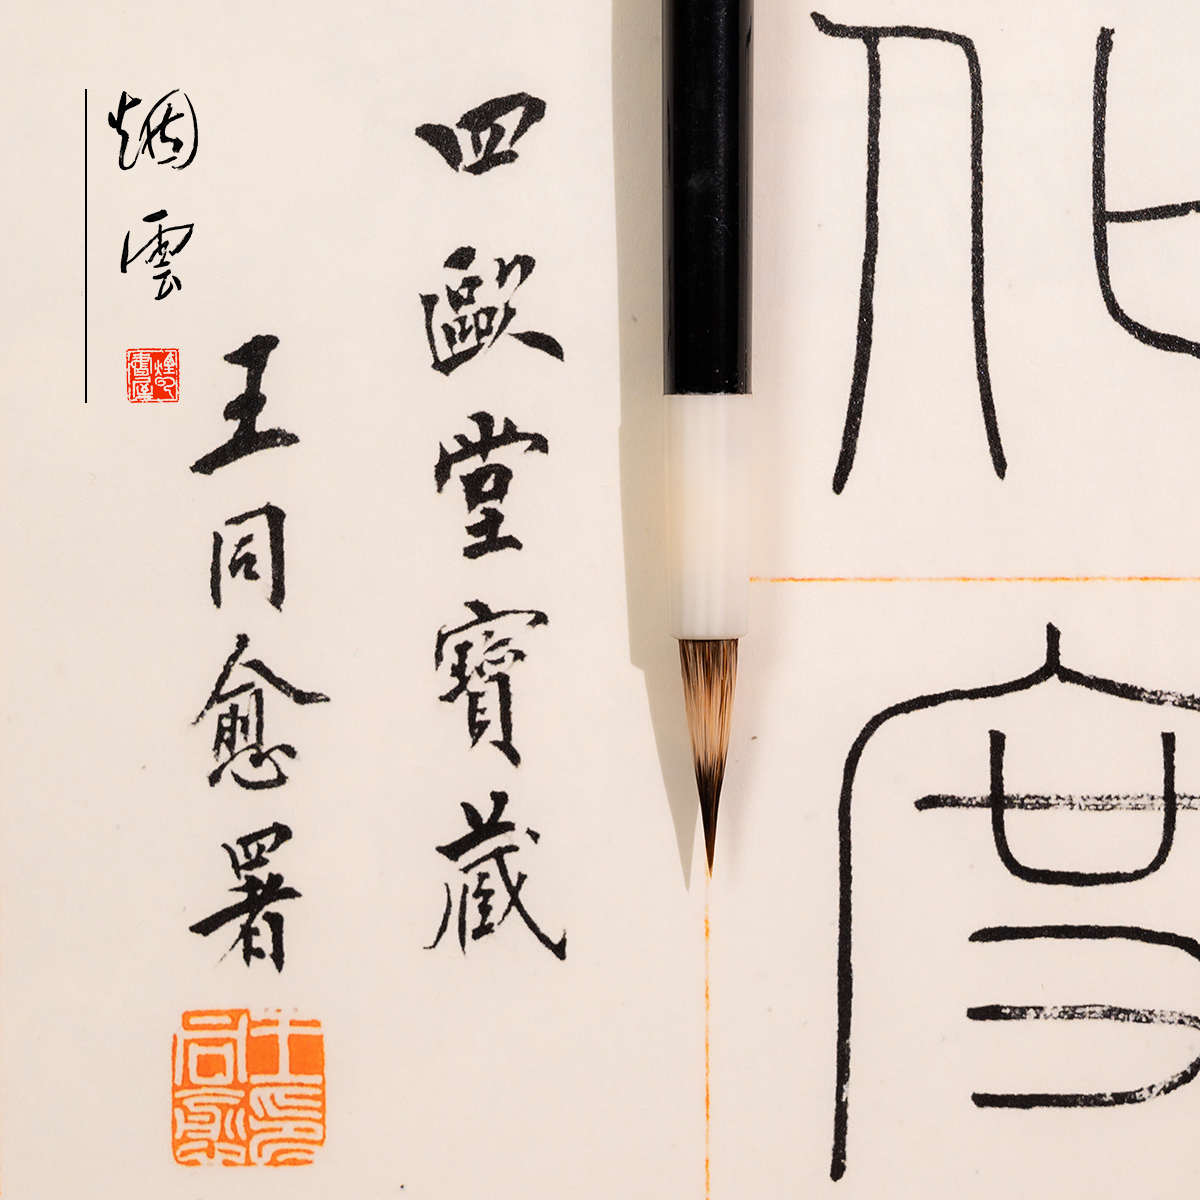 化
度
四歐堂寶藏
王同愈署
烟雲
煙雲書屋
王同愈印